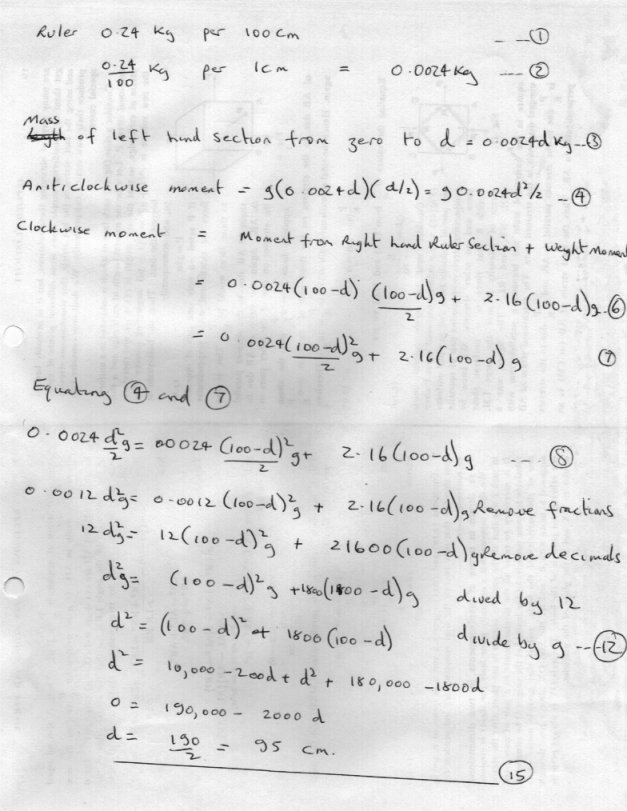 Ruler 0.24 Kg per 100 cm - - - ①
0.24/100 Kg per 1cm = 0.0024 Kg --- ②
Mass
length of left hand section from zero to d = 0.0024d Kg--③
Anticlockwise moment = g(0.0024d)(d/2) = g0.0024d²/2 -- ④
Clockwise moment = Moment from Right hand Ruler Section + Weight Momen
= 0.0024(100-d) (100-d)/2 g + 2.16(100-d)g-⑥
= 0.0024(100-d)²/2 g + 2.16(100-d) g ⑦
Equating ④ and ⑦
0.0024 d²/2 g = 00024 (100-d)²/2 g + 2.16(100-d) g ---- ⑧
0.0012 d²g = 0.0012 (100-d)²g + 2.16(100-d)g Remove fractions
12 d²g = 12(100-d)²g + 21600(100-d)g Remove decimals
d²g = (100-d)²g +1800(1800-d)g dived by 12
d² = (100-d)² + 1800(100-d) divide by g --⑫
d² = 10,000 -200d + d² + 180,000 -1800d
0 = 190,000 - 2000 d
d = 190/2 = 95 cm.
⑮